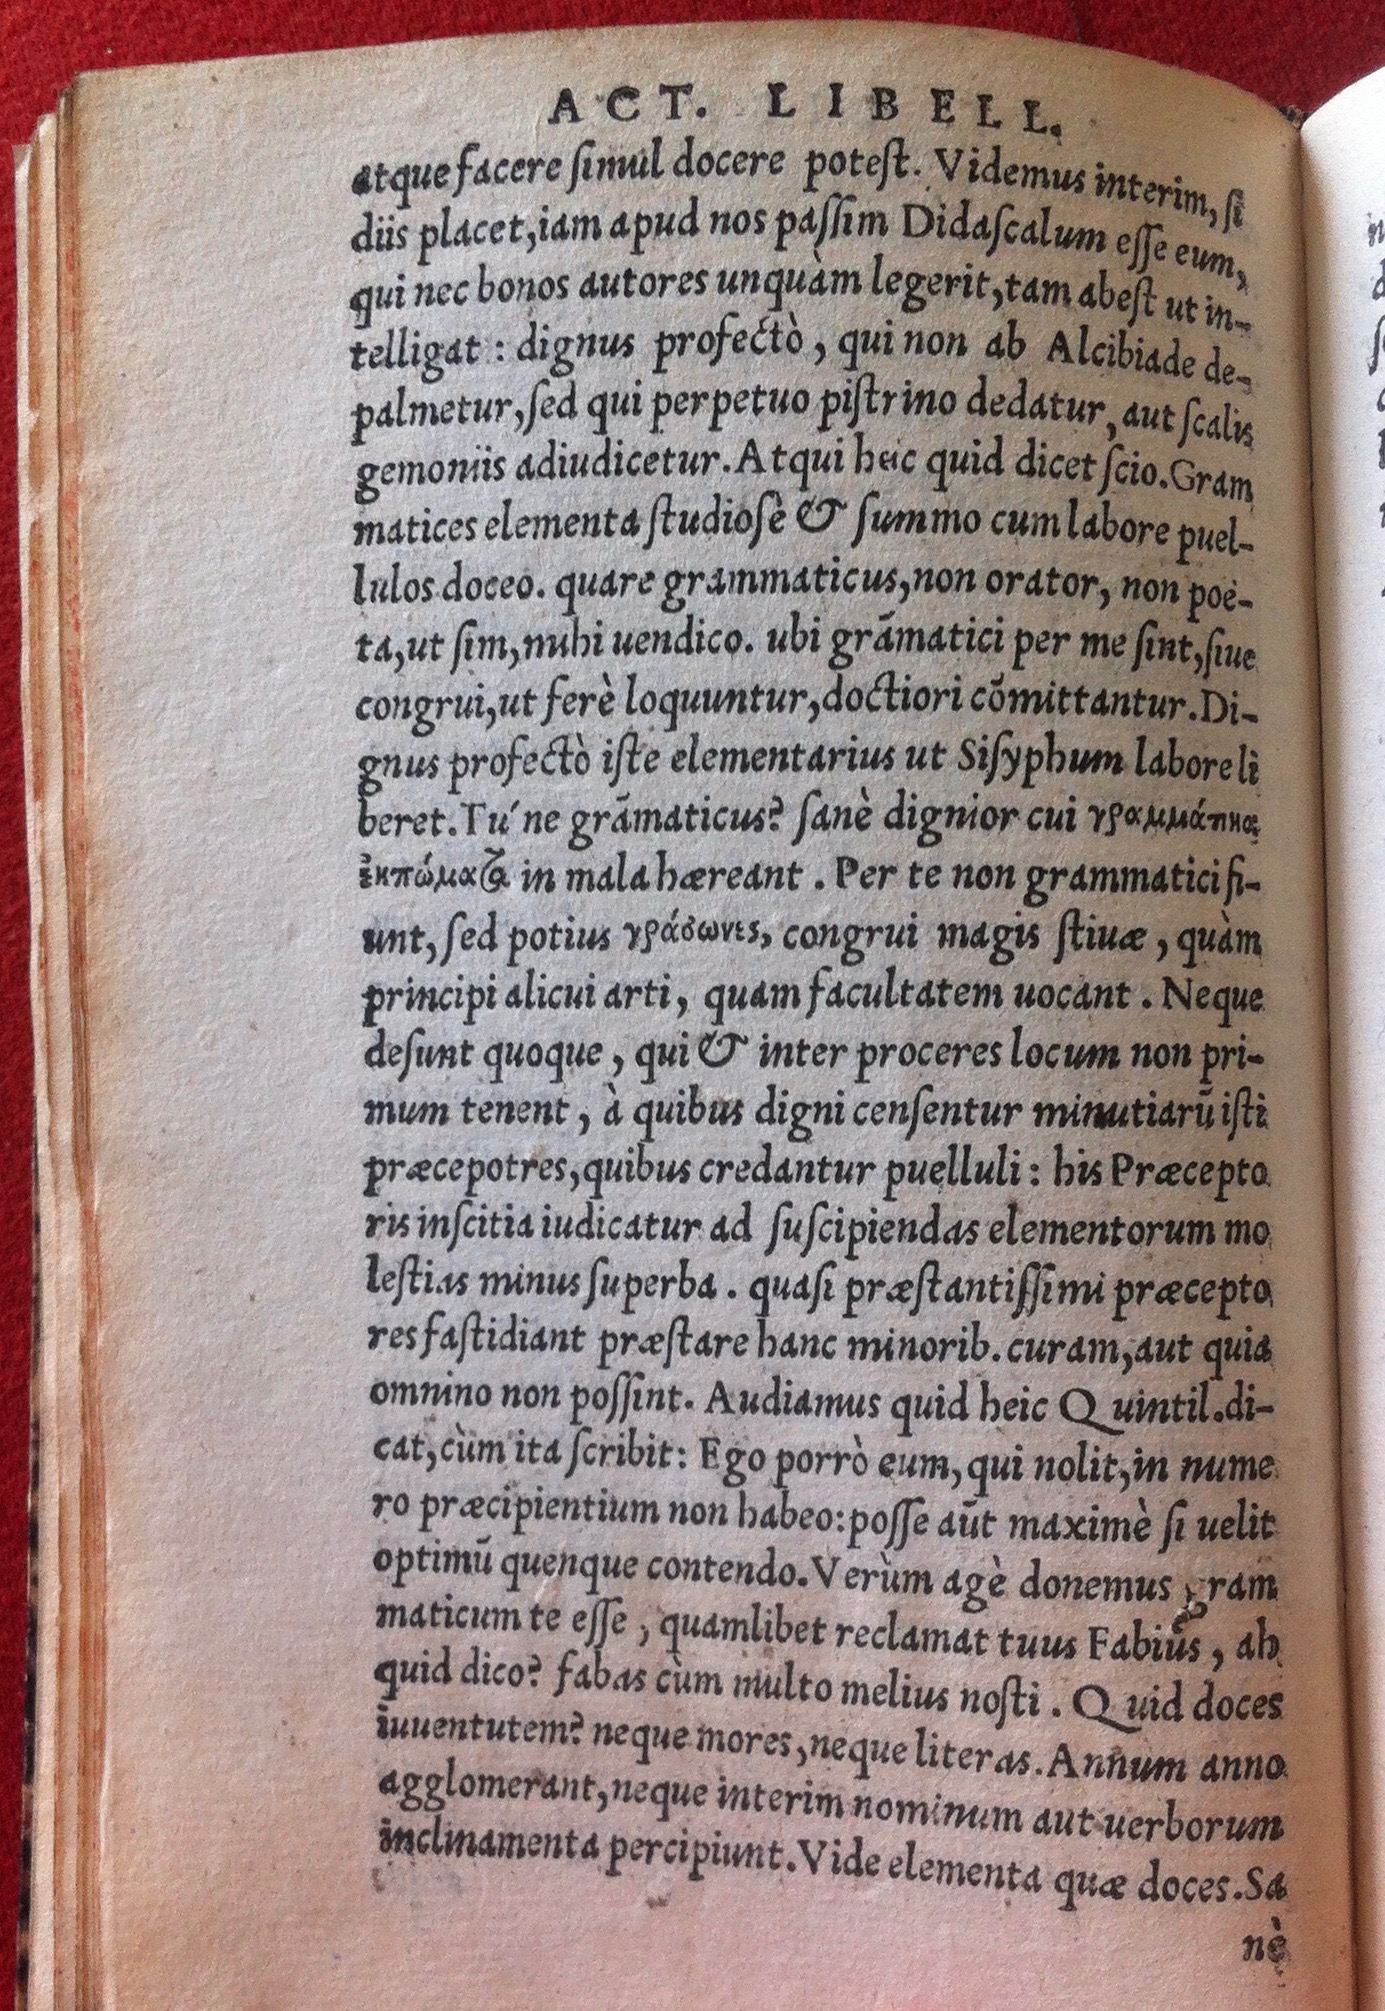 ACT. LIBELL.
atque facere ſimul docere poteſt. Videmus interim, ſi
diis placet, iam apud nos paſſim Didaſcalum eſſe eum,
qui nec bonos autores unquàm legerit, tam abeſt ut in-
telligat : dignus profectò, qui non ab Alcibiade de-
palmetur, ſed qui perpetuo piſtrino dedatur, aut ſcalis
gemoniis adiudicetur. Atqui heic quid dicet ſcio. Gram
matices elementa ſtudioſè & ſummo cum labore puel-
lulos doceo. quare grammaticus, non orator, non poë-
ta, ut ſim, mihi uendico. ubi grāmatici per me ſint, ſiue
congrui, ut ferè loquuntur, doctiori cōmittantur. Di-
gnus profectò iſte elementarius ut Siſyphum labore li
beret. Tu' ne grāmaticus? ſanè dignior cui γραμμάτικα
ἐκπώματα in mala hæreant . Per te non grammatici fi-
unt, ſed potius γράσωνες, congrui magis ſtiuæ , quàm
principi alicui arti, quam facultatem uocant . Neque
deſunt quoque, qui & inter proceres locum non pri-
mum tenent, à quibus digni cenſentur minutiarū iſti
præcepotres, quibus credantur puelluli : his Præcepto
ris inſcitia iudicatur ad ſuſcipiendas elementorum mo
leſtias minus ſuperba . quaſi præſtantiſſimi præcepto
res faſtidiant præſtare hanc minorib. curam, aut quia
omnino non poſſint. Audiamus quid heic Quintil. di-
cat, cùm ita ſcribit: Ego porrò eum, qui nolit, in nume
ro præcipientium non habeo: poſſe aūt maximè ſi uelit
optimū quenque contendo. Verùm agè donemus gram
maticum te eſſe, quamlibet reclamat tuus Fabius, ah
quid dico? fabas cùm multo melius noſti . Quid doces
iuuentutem? neque mores, neque literas. Annum anno
agglomerant, neque interim nominum aut uerborum
inclinamenta percipiunt. Vide elementa quæ doces. Sa
nè